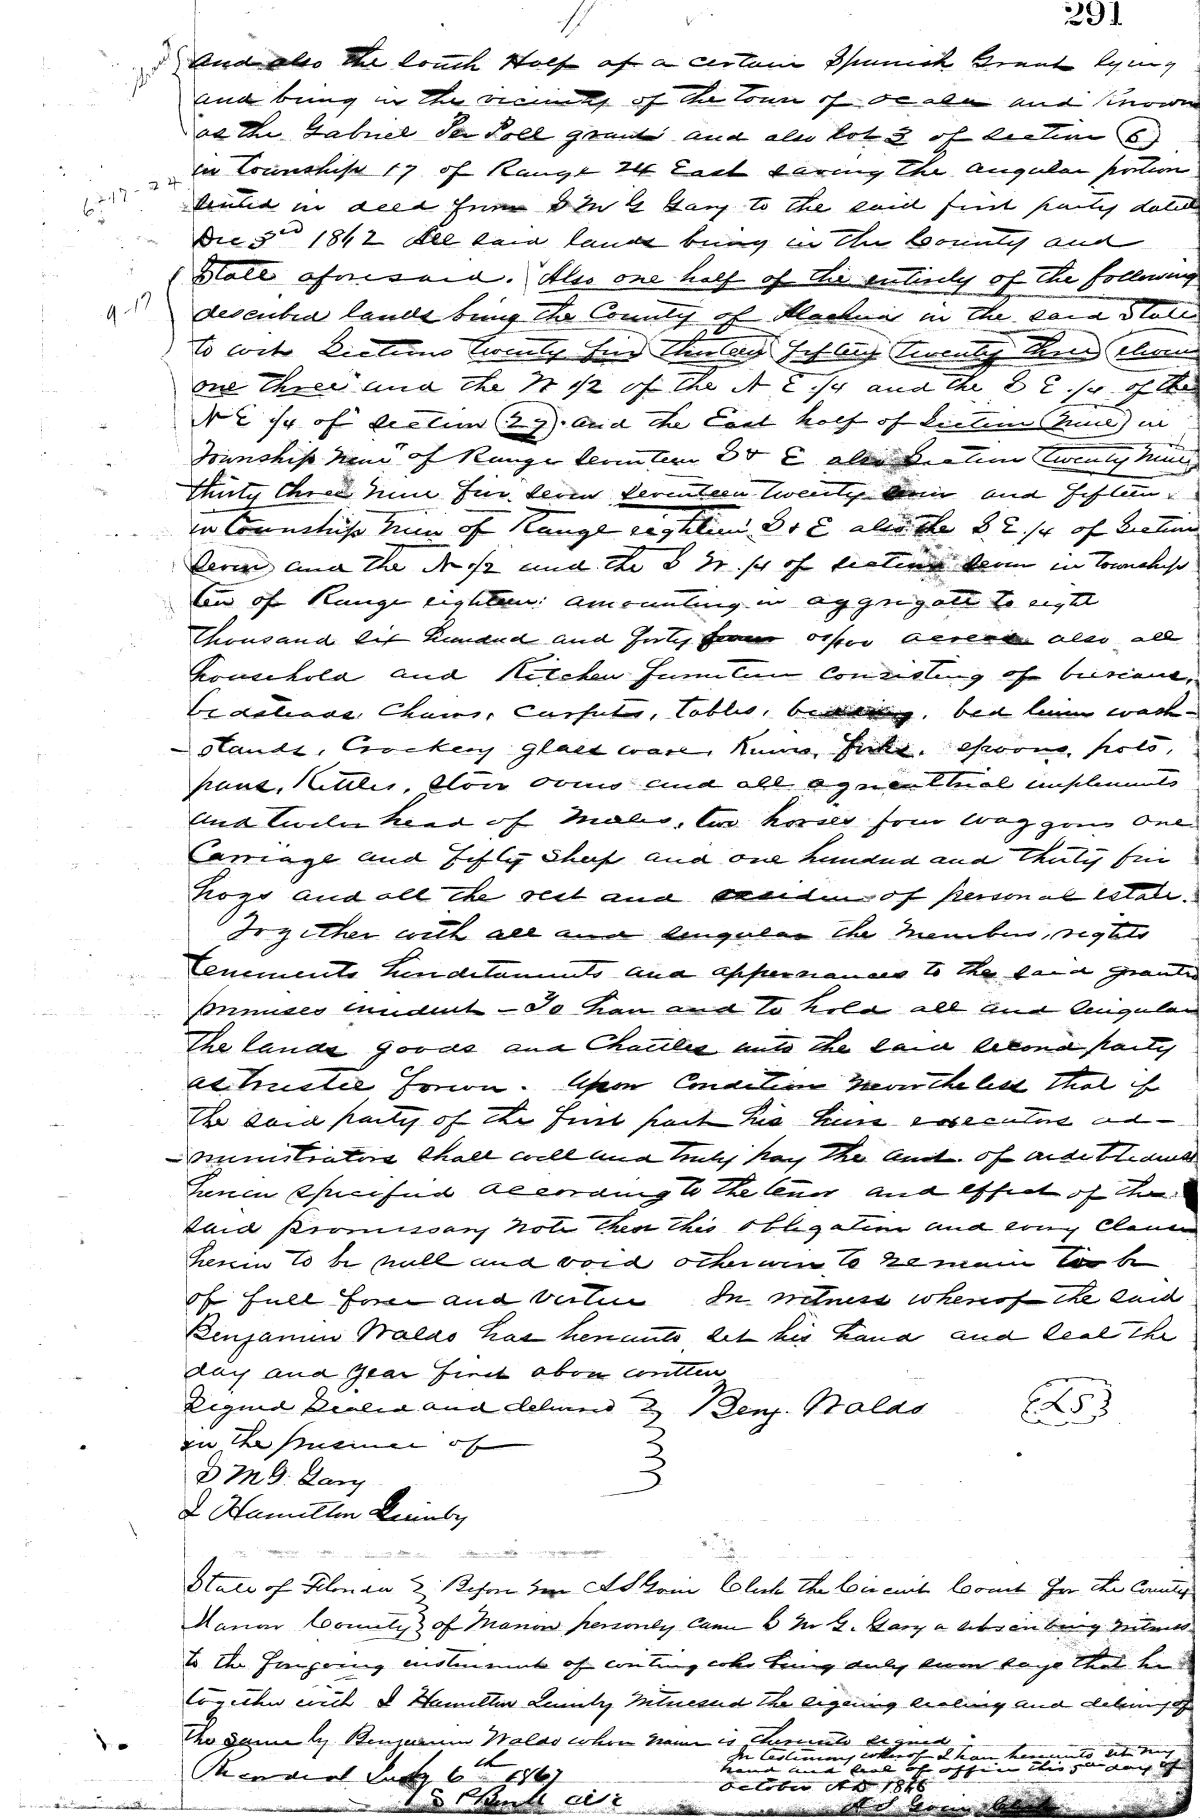 291
and also the South Half of a certain Spanish Grant lying
and being in the vicinity of the Town of Ocala and Known
as the Gabriel Per Poll grant and also Lot 3 of Section 6
in Township 17 of Range 24 East saving the angular portion
6-17-24
in deed from S M G Gary to the said first party dated
Dec 3rd 1862 All said lands being in the County and
State aforesaid. Also one half of the entirely of the following
9-17
described lands being the County of Alachua in the said State
to wit Sections twenty five thirteen fifteen twenty three eleven
one three and the W 1/2 of the N E 1/4 and the S E 1/4 of the
N E 1/4 of Section 27. and the East half of Section Nine in
Township Nine of Range Seventeen S & E also Section twenty nine
thirty three nine five seven seventeen twenty and fifteen
in Township Nine of Range eighteen S & E also the S E 1/4 of Section
Seven and the N 1/2 and the S W 1/4 of Section seven in Township
Ten of Range eighteen: amounting in aggregate to eight
thousand six hundred and forty 00/100 acres also all
household and Kitchen furniture consisting of bureaus,
bedsteads, Chairs, Carpets, tables, bedding, bed linen wash-
-stands, Crockery glass ware, Knives, forks, spoons, pots,
pans, Kettles, stove ovens and all agricultural implements
and twelve head of Mules, two horses four waggons one
Carriage and fifty Sheep and one hundred and thirty five
hogs and all the rest and residue of personal estate.
Together with all and singular the Members, rights
tenements hereditaments and appernances to the said granted
premises incident - To have and to hold all and singular
the lands goods and Chattles unto the said second party
as trustee forever. Upon Condition nevertheless that if
the said party of the first part his heirs executors ad-
-ministrators shall well and truly pay the amt. of indebtedness
herein specified according to the tenor and effect of the
said promissory note then this obligation and every Clause
herein to be null and void otherwise to remain to be
of full force and virtue In witness whereof the said
Benjamin Waldo has hereunto set his hand and seal the
day and year first above written
Signed Sealed and delivered } Benj. Waldo (LS)
in the presence of
S M G. Gary
I Hamilton Quimby
State of Florida } Before me A S Goin Clerk the Circuit Court for the County
Marion County } of Marion personly came S M G. Gary a subscribing witness
to the foregoing instrument of writing who being duly sworn says that he
together with I Hamilton Quimby witnessed the signing sealing and delivery of
the same by Benjamin Waldo whose name is thereunto signed
In testimony whereof I have hereunto set my
hand and seal of office this 5th day of
October AD 1866
A S Goin Clerk
Recorded July 6th 1867